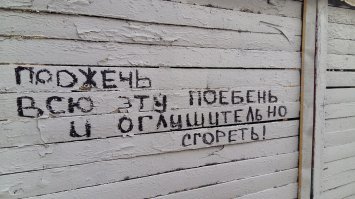 ПОДЖЕЧЬ
ВСЮ ЭТУ ПОЕБЕНЬ
И ОГЛУШИТЕЛЬНО
СГОРЕТЬ!